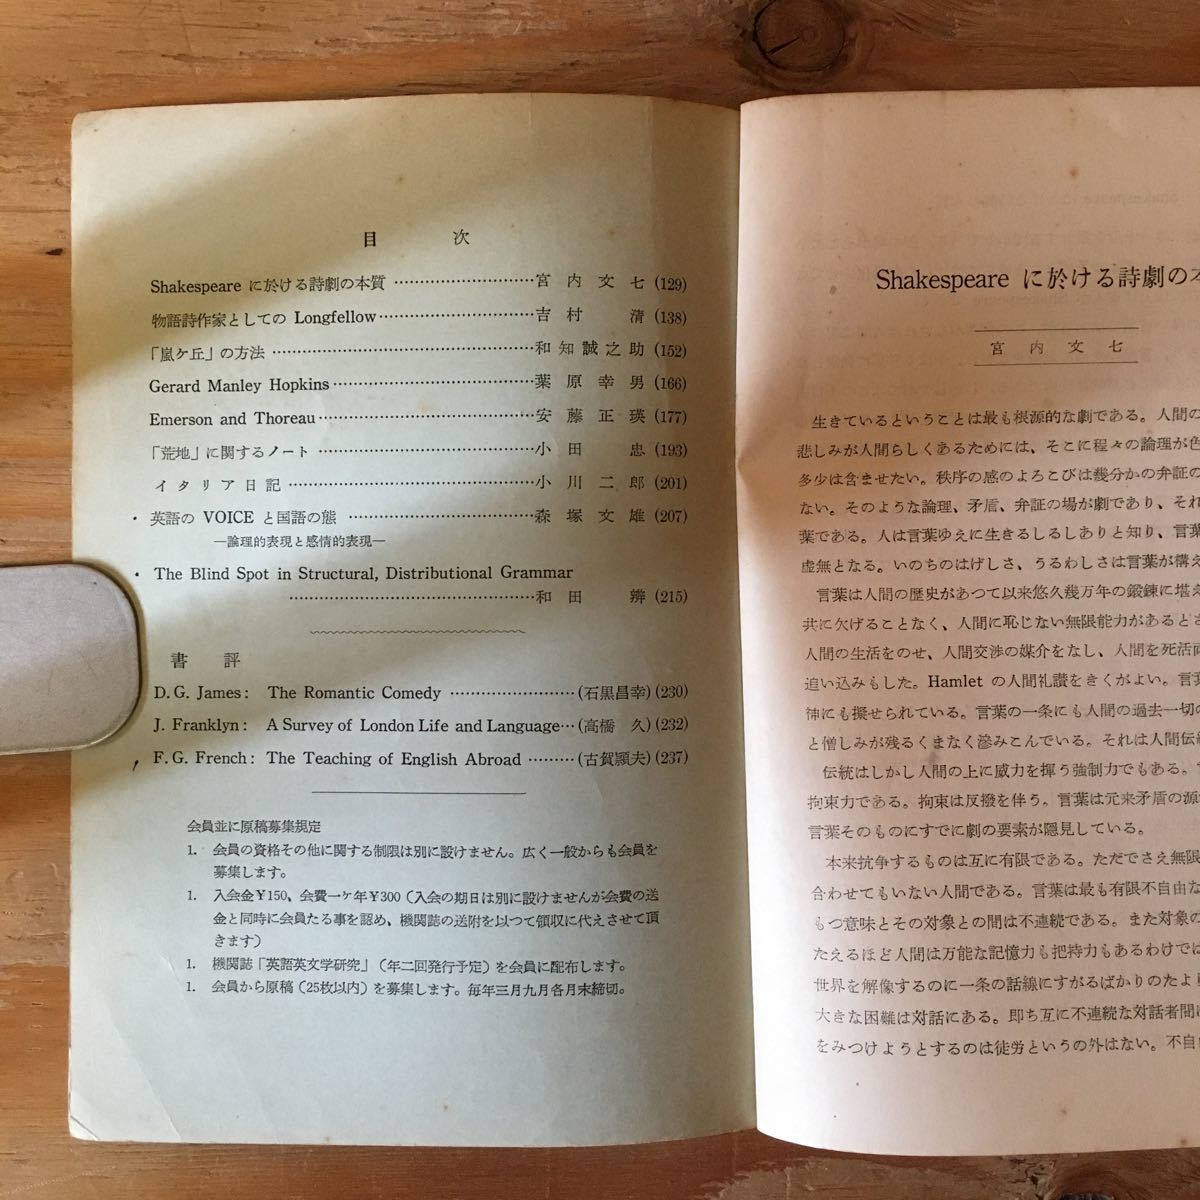 目次
Shakespeare に於ける詩劇の本質 ……………………… 宮内文七 (129)
物語詩作家としての Longfellow ……………………… 吉村清 (138)
「嵐ケ丘」の方法 ……………………… 和知誠之助 (152)
Gerard Manley Hopkins ……………………… 葉原幸男 (166)
Emerson and Thoreau ……………………… 安藤正瑛 (177)
「荒地」に関するノート ……………………… 小田忠 (193)
イタリア日記 ……………………… 小川二郎 (201)
・英語の VOICE と国語の態 ……………………… 森塚文雄 (207)
―論理的表現と感情的表現―
・The Blind Spot in Structural, Distributional Grammar
……………………… 和田辨 (215)
書評
D.G. James: The Romantic Comedy ……………… (石黒昌幸) (230)
J. Franklyn: A Survey of London Life and Language… (高橋久) (232)
F.G. French: The Teaching of English Abroad ……… (古賀顕夫) (237)
会員並に原稿募集規定
1. 会員の資格その他に関する制限は別に設けません。広く一般からも会員を
募集します。
1. 入会金¥150、会費一ケ年¥300(入会の期日は別に設けませんが会費の送
金と同時に会員たる事を認め、機関誌の送附を以つて領収に代えさせて頂
きます)
1. 機関誌「英語英文学研究」(年二回発行予定)を会員に配布します。
1. 会員から原稿(25枚以内)を募集します。毎年三月九月各月末締切。
Shakespeare に於ける詩劇の
宮内文七
生きているということは最も根源的な劇である。人間の
悲しみが人間らしくあるためには、そこに程々の論理が色
多少は含ませたい。秩序の感のよろこびは幾分かの弁証の
ない。そのような論理、矛盾、弁証の場が劇であり、それ
葉である。人は言葉ゆえに生きるしるしありと知り、言葉
虚無となる。いのちのはげしさ、うるわしさは言葉が構え
言葉は人間の歴史があつて以来悠久幾万年の鍛錬に堪え
共に欠げることなく、人間に恥じない無限能力があるとさ
人間の生活をのせ、人間交渉の媒介をなし、人間を死活両
追い込みもした。Hamlet の人間礼讃をきくがよい。言葉
神にも擬せられている。言葉の一条にも人間の過去一切の
と憎しみが残るくまなく滲みこんでいる。それは人間伝統
伝統はしかし人間の上に威力を揮う強制力でもある。
拘束力である。拘束は反撥を伴う。言葉は元来矛盾の源
言葉そのものにすでに劇の要素が隠見している。
本来抗争するものは互に有限である。ただでさえ無限
合わせてもいない人間である。言葉は最も有限不自由な
もつ意味とその対象との間は不連続である。また対象の
たえるほど人間は万能な記憶力も把持力もあるわけでは
世界を解像するのに一条の話線にすがるばかりのたより
大きな困難は対話にある。即ち互に不連続な対話者間に
をみつけようとするのは徒労というの外はない。不自由